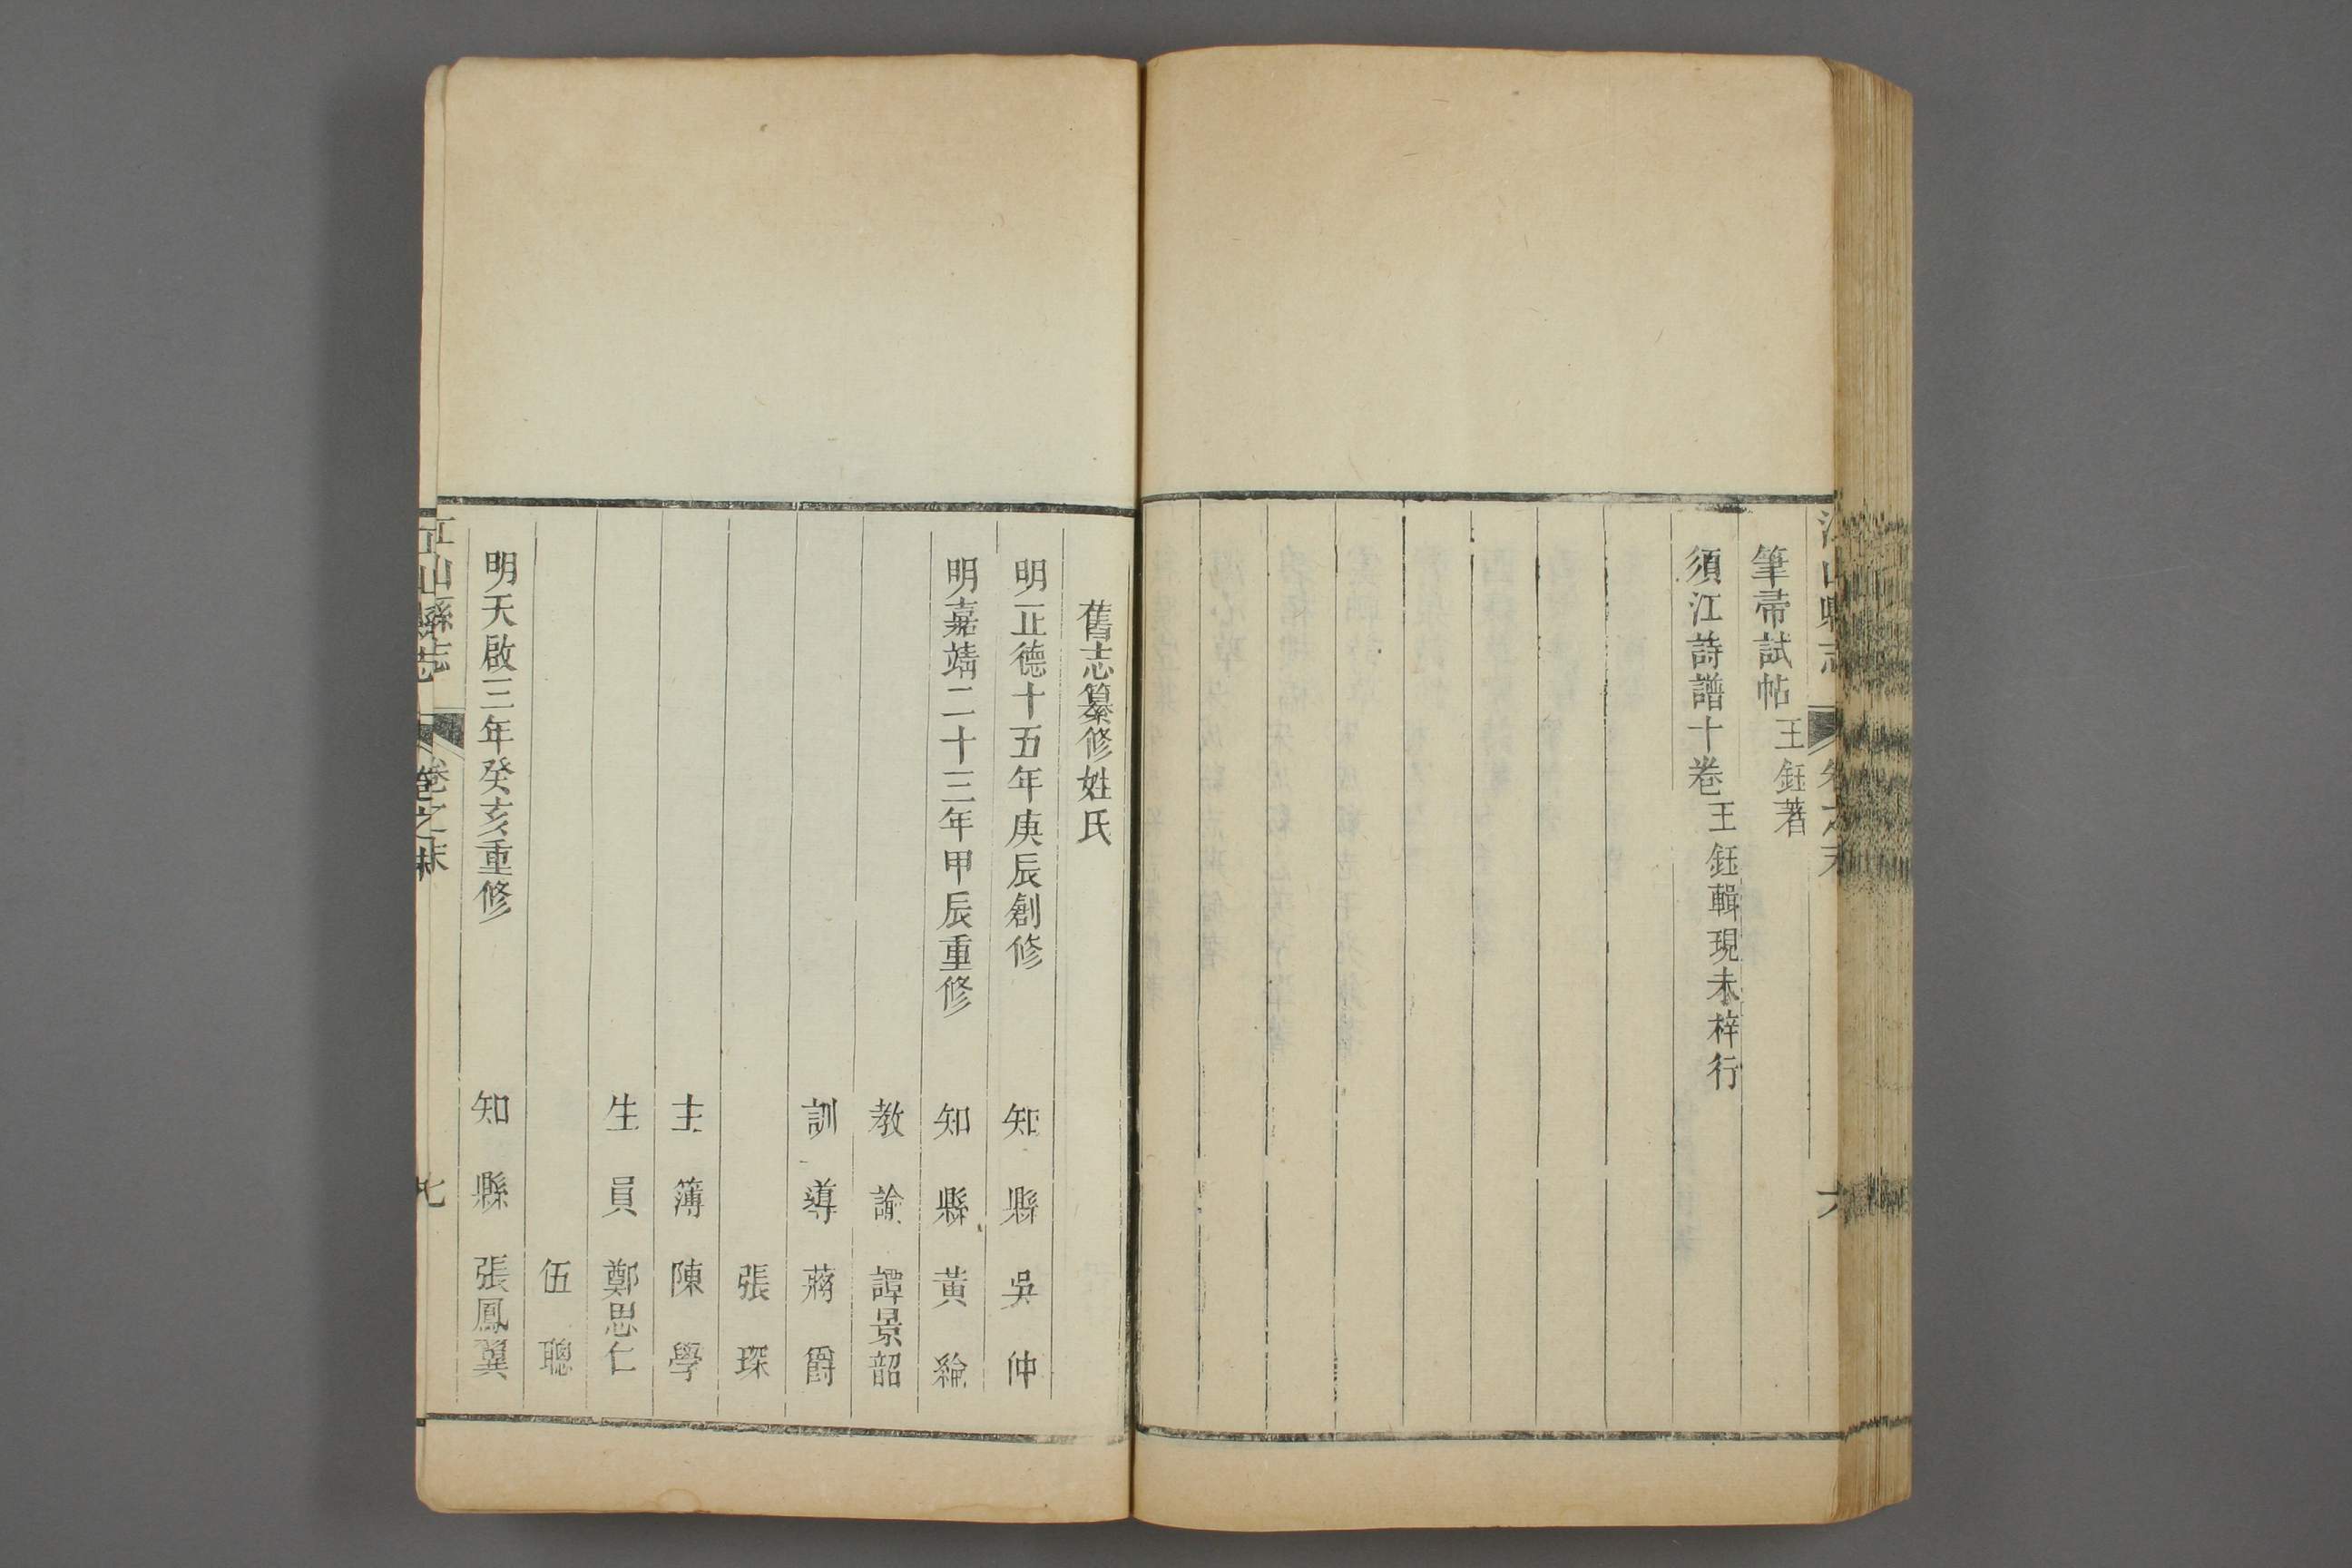 江山縣志 卷之末 六
筆帚試帖 王鈺著
須江詩譜十卷 王鈺輯現未梓行
舊志纂修姓氏
明正德十五年庚辰創修 知縣 吳仲
明嘉靖二十三年甲辰重修 知縣 黃綸
教諭 譚景韶
訓導 蔣爵
張琛
主簿 陳學
生員 鄭思仁
伍聰
明天啟三年癸亥重修 知縣 張鳳翼
江山縣志 卷之末 七